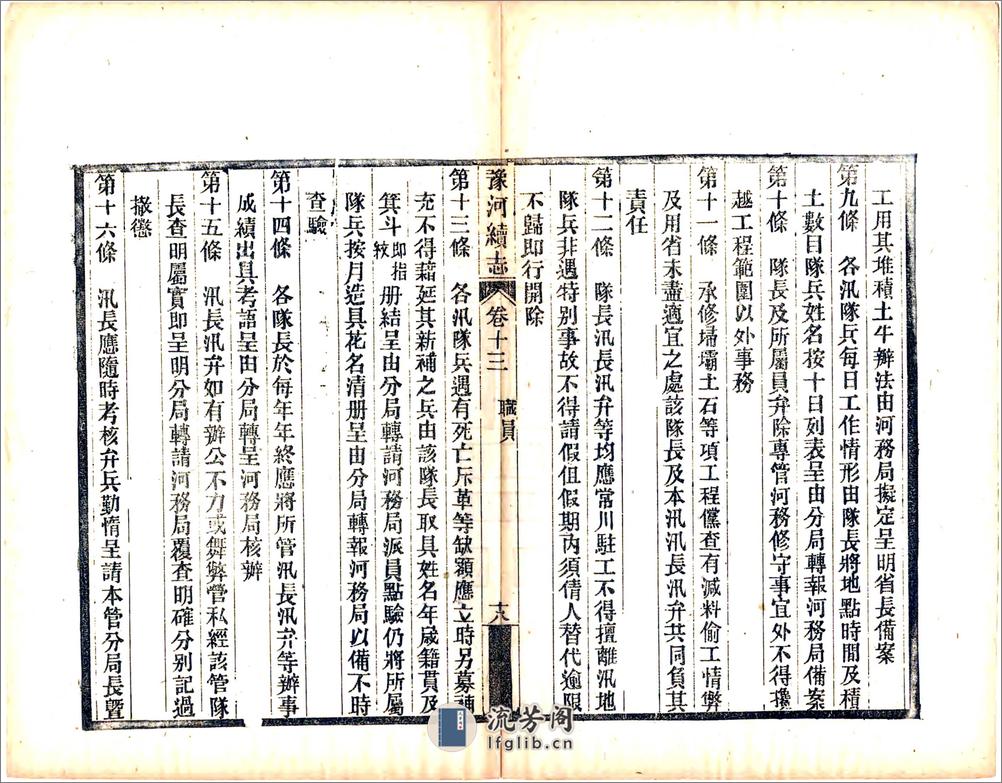 工用其堆積土牛辦法由河務局擬定呈明省長備案
第九條　各汛隊兵每日工作情形由隊長將地點時間及積
土數目隊兵姓名按十日列表呈由分局轉報河務局備案
第十條　隊長及所屬員弁除專管河務修守事宜外不得攙
越工程範圍以外事務
第十一條　承修埽壩土石等項工程儻查有減料偷工情弊
及用省未盡適宜之處該隊長及本汛汛長汛弁共同負其
責任
第十二條　隊長汛長汛弁等均應常川駐工不得擅離汛地
隊兵非遇特別事故不得請假但假期內須倩人替代逾限
不歸即行開除
豫河續志　卷十三　職員　十八
第十三條　各汛隊兵遇有死亡斥革等缺額應立時另募補
充不得藉延其新補之兵由該隊長取具姓名年歲籍貫及
箕斗即指紋册結呈由分局轉請河務局派員點驗仍將所屬
隊兵按月造具花名清册呈由分局轉報河務局以備不時
查驗
第十四條　各隊長於每年年終應將所管汛長汛弁等辦事
成績出具考語呈由分局轉呈河務局核辦
第十五條　汛長汛弁如有辦公不力或舞弊營私經該管隊
長查明屬實即呈明分局轉請河務局覆查明確分別記過
撤懲
第十六條　汛長應隨時考核弁兵勤惰呈請本管分局長暨
流芳阁
lfglib.cn